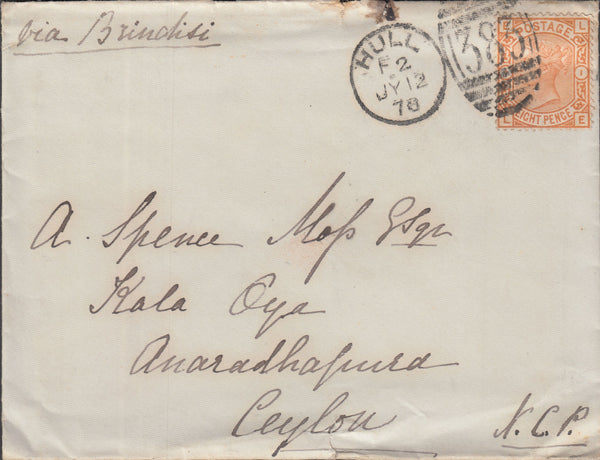 via Brindisi
HULL
F 2
JY 12
78
383
POSTAGE
EIGHT PENCE
E L
1
L E
A. Spence Moſs Esqr
Kala Oya
Anaradhapura
Ceylon
N.C.P.